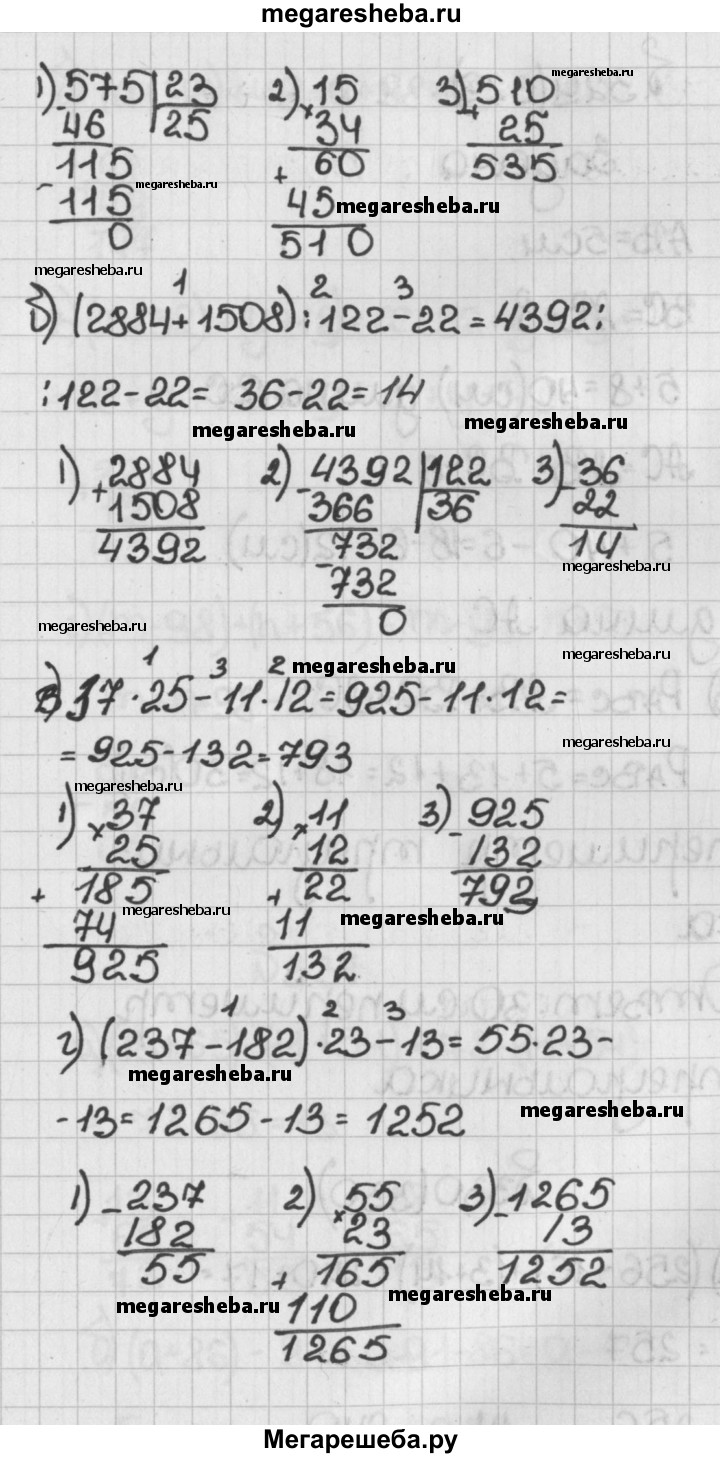 megaresheba.ru
1) 575 | 23 2) 15 3) 510 megaresheba.ru
- 46 | 25 × 34 + 25
115 + 60 535
- 115 megaresheba.ru 45 megaresheba.ru
0 510
megaresheba.ru
1 2 3
б) (2884+1508):122-22=4392:
:122-22= 36-22=14
megaresheba.ru megaresheba.ru
1) + 2884 2) - 4392 | 122 3) - 36
1508 366 | 36 22
4392 - 732 14
732 megaresheba.ru
0
megaresheba.ru megaresheba.ru
1 3 2 megaresheba.ru
в) 37·25-11·12=925-11·12=
=925-132=793 megaresheba.ru
megaresheba.ru
1) × 37 2) × 11 3) - 925
25 12 132
+ 185 + 22 792
74 megaresheba.ru 11 megaresheba.ru
925 132
1 2 3
г) (237-182)·23-13= 55·23-
megaresheba.ru
-13=1265-13=1252 megaresheba.ru
1) - 237 2) × 55 3) - 1265
182 23 13
55 + 165 1252
megaresheba.ru 110 megaresheba.ru
1265
Мегарешеба.ру